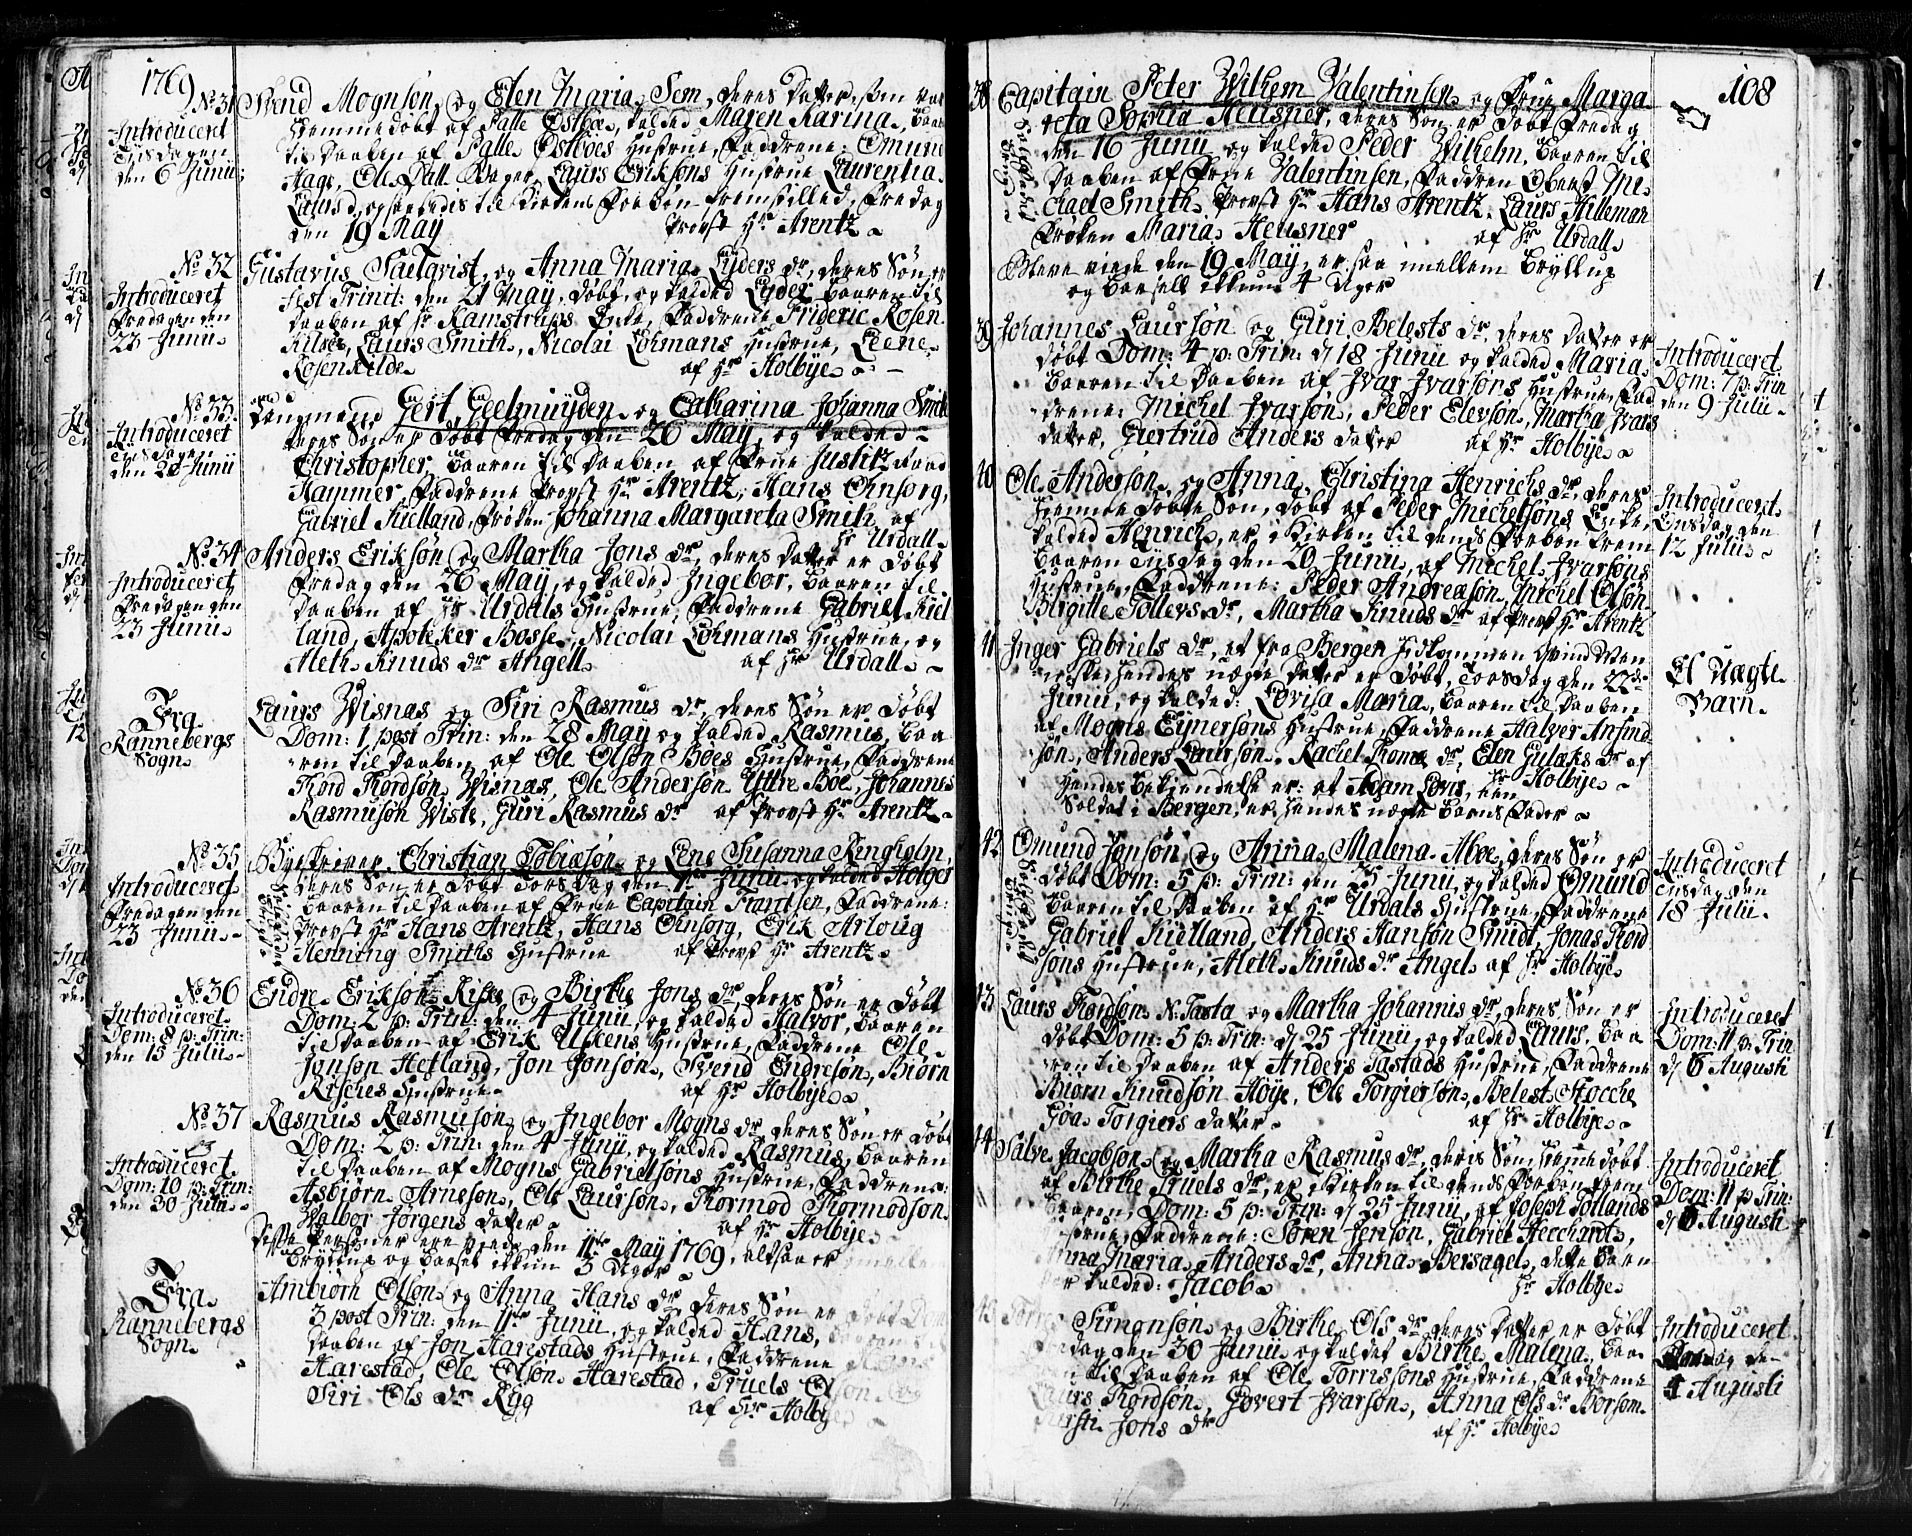 1769
No 31 Svend Mognsøn, og Elen Maria Sem, deres Datter, som var
Introduceret
Tiisdagen
den 6 Junii
hiemmedøbt af Palle Østboe, kalded Maren Karina, baar
til Daaben af Palle Østboes Hustrue, Faddrene: Omund
Hage, Ole Pall Bager, Laurs Eriksøns Hustrue Laurentia
den 19 May
Provst Hr Arentz
No 32
Introduceret
Fredagen den
23 Junii
Gustavus Saelqvist, og Anna Maria Lyders dr, deres Søn er
Fest Trinit: den 21 May, døbt, og kalded Lyder, baaren til
daaben af Hr Kamstrups Enke, Faddrene Frideric Rosen
Kilde, Laurs Smith, Nicolai Lohmans Hustrue, Leene
Rosenkilde
af Hr Holbye
No 33
Introduceret
Tiisdagen
den 20 Junii
Laugmand Gert Geelmuyden og Catharina Johanna Smith
deres Søn er døbt Fredag den 26 May, og kaldед
Christopher, baaren til Daaben af Frue Justitz Raad
Hammer, Faddrene Provst Hr Arentz, Hans Ohnsorg,
Gabriel Kielland, Frøken Johanna Margareta Smith af
Hr Urdall
No 34
Introduceret
Fredagen den
23 Junii
Anders Eriksøn og Martha Jons dr, deres Datter er døbt
Fredag den 26 May, og kaldед Ingebor, baaren til
Daaben af Hr Urdals Hustrue, Faddrene Gabriel Kiel
land, Apoteker Bosse, Nicolai Lohmans Hustrue, og
Aleth Knuds dr Angell
af Hr Urdall
Fra
Rannebergs
Sogn
Laurs Wisnas og Siri Rasmus dr, deres Søn er døbt
Dom: 1 post Trin: den 28 May og kaldед Rasmus, baa
ren til Daaben af Ole Olsøn Boes Hustrue, Faddrene
Thord Thordsøn Wisnas, Ole Andersøn Yttre Boe, Johannes
Rasmusøn Wiste, Guri Rasmus dr af Provst Hr Arentz
No 35
Introduceret
Fredagen den
23 Junii
Byeskriver Christian Tobiæsøn og Lene Susanna Ringholm,
deres Søn er døbt Torsdag den 1ste Junii og kalded Holger
baaren til Daaben af Frue Capitain Frantsen, Faddrene:
Provst Hr Hans Arentz, Hans Ohnsorg, Erik Arloug
Henning Smiths Hustrue af Provst Hr Arentz
No 36
Introduceret
Dom: 8 p: Trin:
den 15 Julii
Endre Eriksøn Riske, og Birthe Jons dr, deres Søn er døbt
Dom: 2 p: Trin: den 4 Junii, og kaldед Halvor, baaren
til Daaben af Erik Uskens Hustrue, Faddrene Ole
Jonsøn Hetland, Jon Jonsøn, Svend Endresøn, Biørn
Riskes Hustrue
af Hr Holbye
No 37
Introduceret
Dom: 10 p: Trin:
den 30 Julii
Rasmus Rasmusøn, og Ingebor Mogns dr deres Søn er døbt
Dom: 2 p: Trin: den 4 Junii, og kaldед Rasmus, baaren
til Daaben af Mogns Gabrielsøns Hustrue, Faddrene:
Asbiørn Arnesøn, Ole Laursøn, Thormod Thormodsøn
Walbor Jørgens datter
af Hr Holbye
Disse Personer ere viede den 11te May 1769, altsaa er imellem
Bryllup og Barsel ikkun 3 Uger
Fra
Rannebergs
Sogn
Ambiørn Olsøn, og Anna Hans dr deres Søn er døbt Dom
3 post Trin: den 11te Junii, og kaldед Hans,
daaben af Jon Harestads Hustrue, Faddrene
Harestad, Ole Olsøn Harestad, Truels Olsøn og
Siri Ols dr Rygg
af Hr Holbye
108
38 Capitain Peter Wilhem Valentinsen og Frue Marga
reta Sophia Heusner, deres Søn er døbt Fredag
den 16 Junii og kaldед Peder Wilhelm, baaren til
Daaben af Frue Valentinsen, Faddren Oberst Mi
chael Smith, Provst Hr Hans Arentz, Laurs Hilleman
Frøken Maria Heusner
af Hr Urdall
Bleve viede den 19 May, er saa imellem Bryllup
og Barsell ikkun 4 Uger
39 Johannes Laursøn og Guri Belests dr, deres Datter er
døbt Dom: 4 p: Trin: d 18 Junii og kaldед Maria,
baaren til Daaben af Ivar Ivarsøns Hustrue, Fad
drene: Michel Ivarsøn, Peder Elevsøn, Martha Ivars
datter, Giertrud Anders datter
af Hr Holbye
Introduceret
Dom: 7 p: Trin
den 9 Julii
40 Ole Andersøn, og Anna Christina Henrichs dr, deres
hiemmedøbte Søn, døbt af Peder Michelsøns Enke,
kaldед Henrich, er i Kirken til dends Forbøn frem
baaren Tiisdag den 20 Junii, af Michel Ivarsøns
Hustrue, Faddrene: Peder Andreasøn, Michel Olsøn
Birgitte Tollevs dr, Martha Knuds dr af Provst Hr Arentz
Introduceret
Onsdag den
12 Julii
41 Inger Gabriels dr, et fra Bergen hidkommen Qvind Men
niske, hendes uægte datter er døbt, Torsdag den 22de
Junii, og kaldед: Lovisa Maria, baaren til Daaben
af Mogns Ejnersøns Hustrue, Faddrene Halver Ansind
søn, Anders Laursøn, Rachel Thomæ dr, Elen Gulaks dr af
Hr Holbye
Hendes bekiendelse er: at Adam Lovis, een
Soldat i Bergen, er hendes uægte Barns Fader
Et Uægte
Barn
42 Omund Jonsøn, og Anna Malena Aboe, deres Søn er
døbt Dom: 5 p: Trin: den 25 Junii, og kaldед Omund
baaren til Daaben af Hr Urdals Hustrue, Faddrene
Gabriel Kielland, Anders Hansøn Smidt, Jonas Thord
søns Hustrue, Aleth Knuds dr Angel af Hr Holbye
Introduceret
Tiisdag den
18 Julii
43 Laurs Thordsøn N: Tasta og Martha Johannis dr, deres Søn er
døbt Dom: 5 p: Trin: d 25 Junii, og kaldед Laurs, baa
ren til Daaben af Anders Tastads Hustrue, Faddrene
Biørn Knudsøn Høye, Ole Torgiersøn, Belest Stocche
Gøa Torgiers datter
af Hr Holbye
Introduceret
Dom: 11 p: Trin
d 6 Augusti
44 Salve Jacobsøn, og Martha Rasmus dr, deres Søn hiemmedøbt
af Birthe Truels dr, er i Kirken til dends Forbøn frem
baaren, Dom: 5 p: Trin: d 25 Junii, af Joseph Tollands
Hustrue, Faddrene: Søren Jensøn, Gabriel Hecchardt,
Anna Maria Anders dr, Anna Bersagel, dette Barn
er kaldед: Jacob
Hr Holbye
Introduceret
Dom: 11 p: Trin:
d 6 Augusti
Simonsøn, og Birthe Ols dr deres datter er døbt
dag den 30 Junii og kaldet Birthe Malena, baa
n til Daaben af Ole Torrissøns Hustrue, Faddrene
Laurs Thordsøn, Govert Ivarsøn, Anna Ols dr Borsom
Jons dr
af Hr Holbye
Introduceret
4 Augusti